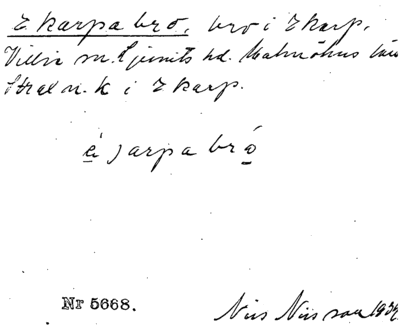 Ekarpa bro, bro i Ekarp,
Villie sn. Ljunits hd. Malmöhus län
Skal n. k i Ekarp.
é j arpa bró
Nr 5668. Nils Nilsson 1934